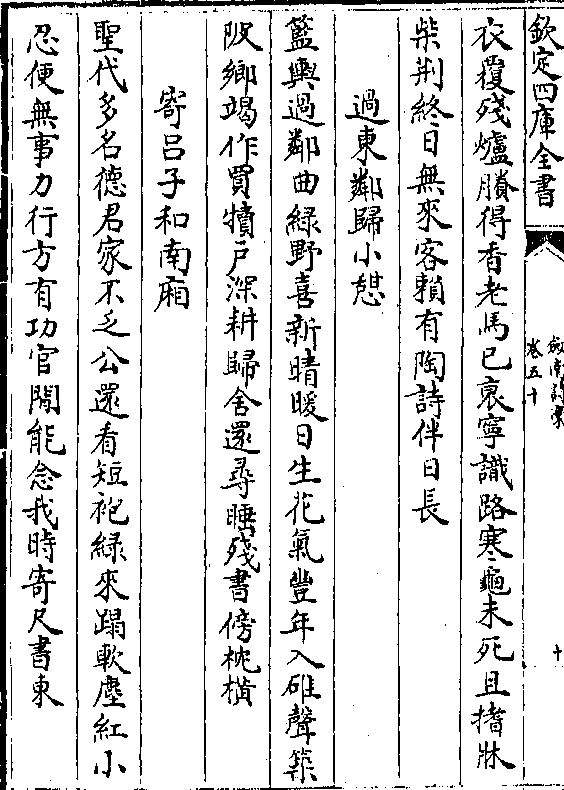 欽定四庫全書
劍南詩稾
卷五十
十
衣覆殘爐賸得香老馬已衰寧識路寒龜未死且搘牀
柴荆終日無來客賴有陶詩伴日長
過東鄰歸小憇
籃輿過鄰曲緑野喜新晴暖日生花氣豐年入碓聲築
陂鄉竭作買犢戶深耕歸舍還尋睡殘書傍枕横
寄吕子和南廂
聖代多名德君家不乏公還看短袍緑來蹋軟塵紅小
忍便無事力行方有功官閒能念我時寄尺書東